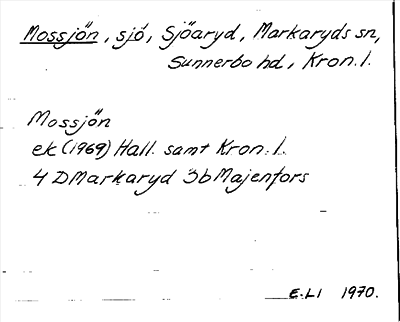 Mossjön, sjö, Sjöaryd, Markaryds sn,
Sunnerbo hd, Kron. l.
Mossjön
ek (1969) Hall. samt Kron. l.
4 D Markaryd 3b Majenfors
E-LI 1970.